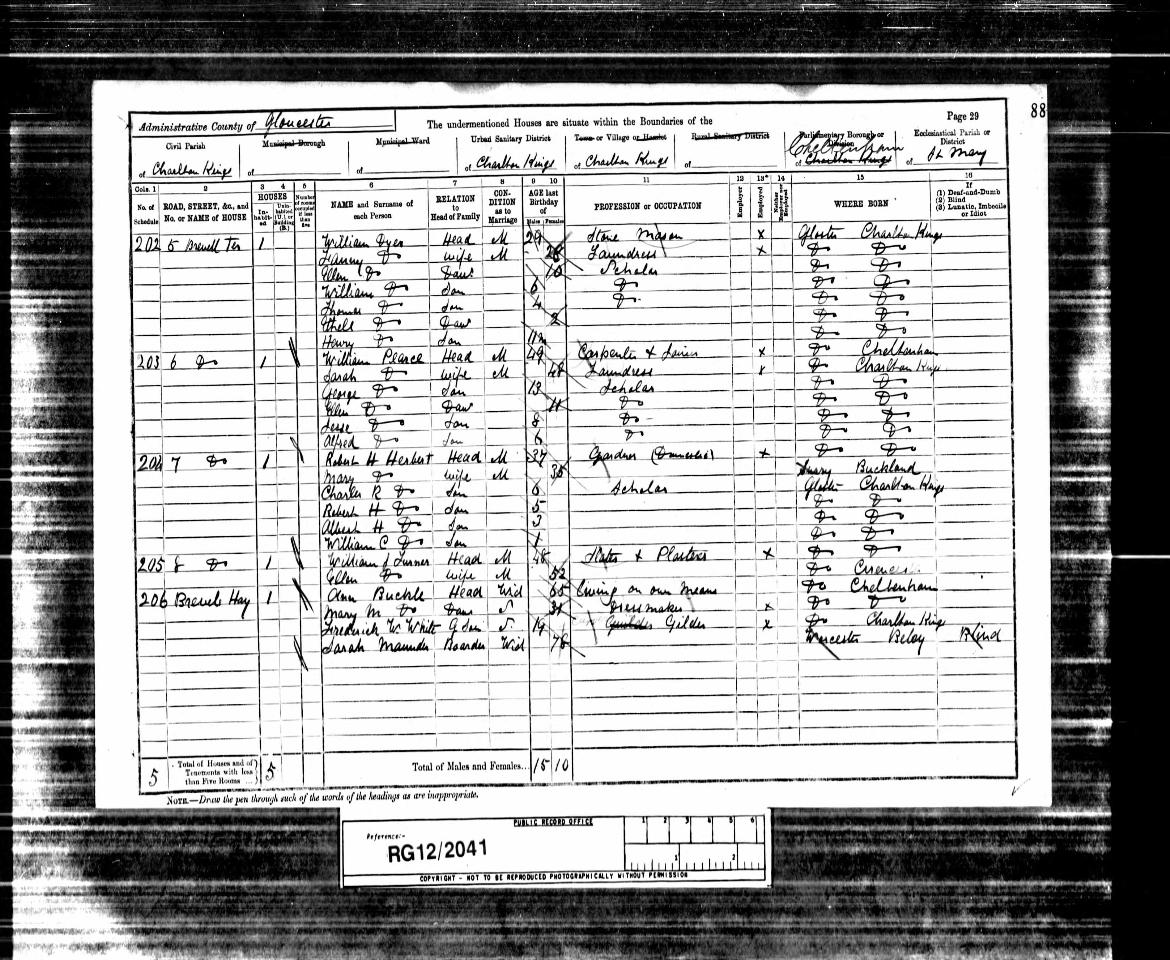 88
Administrative County of Gloucester The undermentioned Houses are situate within the Boundaries of the Page 29
Civil Parish Municipal Borough Municipal Ward Urban Sanitary District Town or Village or Hamlet Rural Sanitary District Parliamentary Borough or Division Ecclesiastical Parish or District
of Charlton Kings of of of Charlton Kings of Charlton Kings of of Cheltenham Charlton Kings of St Mary
Cols. 1 2 3 4 5 6 7 8 9 10 11 12 13 14 15 16
No. of Schedule ROAD, STREET, &c., and No. or NAME of HOUSE HOUSES Inhabited Uninhabited (U.) or Building (B.) Number of rooms occupied if less than five NAME and Surname of each Person RELATION to Head of Family CONDITION as to Marriage AGE last Birthday of Males Females PROFESSION or OCCUPATION Employer Employed Neither Employer nor Employed WHERE BORN If (1) Deaf-and-Dumb (2) Blind (3) Lunatic, Imbecile or Idiot
202 5 Ter 1 William Dyer Head M 29 Stone Mason x Gloster Charlton Kings
Fanny Do Wife M 28 Laundress x Do Do
Ellen Do Daur 10 Scholar Do Do
William Do Son 6 Do Do Do
Thomas Do Son 4 Do Do Do
Ethel Do Daur 2 Do Do
Henry Do Son 11m Do Do
203 6 Do 1 William Pearce Head M 49 Carpenter & Joiner x Do Cheltenham
Sarah Do Wife M 48 Laundress x Do Charlton Kings
George Do Son 13 Scholar Do Do
Ellen Do Daur 11 Do Do Do
Jesse Do Son 8 Do Do Do
Alfred Do Son 6 Do Do Do
204 7 Do 1 Robert H Herbert Head M 37 Gardner (Domestic) x Do Do
Mary Do Wife M 35 Surry Buckland
Charles R Do Son 6 Scholar Gloster Charlton Kings
Robert H Do Son 5 Do Do
Albert H Do Son 3 Do Do
William C Do Son 1 Do Do
205 8 Do 1 William J Turner Head M 48 Slater & Plasterer x Do Do
Ellen Do Wife M 52 Do
206 Hay 1 Ann Buckle Head Wid 65 Living on own Means Do Cheltenham
Mary M Do Daur S 31 Dressmaker x Do Do
Frederick W White G Son S 19 Gilder x Do Charlton Kings
Sarah Maunder Boarder Wid 78 Worcester Beloy Blind
5 Total of Houses and of Tenements with less than Five Rooms 5 Total of Males and Females... 15 10
NOTE.—Draw the pen through such of the words of the headings as are inappropriate.
PUBLIC RECORD OFFICE 1 2 3 4 5 6
Reference:-
RG12/2041 1 2
COPYRIGHT - NOT TO BE REPRODUCED PHOTOGRAPHICALLY WITHOUT PERMISSION